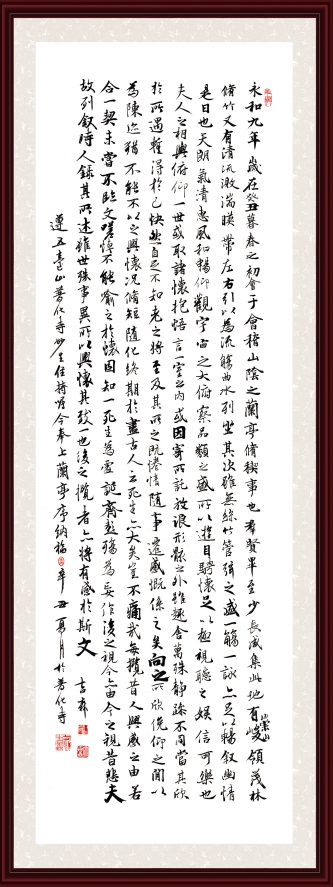 永和九年歲在癸丑暮春之初會于會稽山陰之蘭亭脩稧事也羣賢畢至少長咸集此地有崇山峻領茂林
脩竹又有清流激湍暎帶左右引以為流觴曲水列坐其次雖無絲竹管弦之盛一觴一詠亦足以暢叙幽情
是日也天朗氣清惠風和暢仰觀宇宙之大俯察品類之盛所以遊目騁懷足以極視聽之娛信可樂也
夫人之相與俯仰一世或取諸懷抱悟言一室之內或因寄所託放浪形骸之外雖趣舍萬殊靜躁不同當其欣
於所遇暫得於己快然自足不知老之將至及其所之既惓情隨事遷感慨係之矣向之所欣俛仰之間以
為陳迹猶不能不以之興懷況脩短隨化終期於盡古人云死生亦大矣豈不痛哉每攬昔人興感之由若
合一契未嘗不臨文嗟悼不能喻之於懷固知一死生為虛誕齊彭殤為妄作後之視今亦由今之視昔悲夫
故列叙時人錄其所述雖世殊事異所以興懷其致一也後之攬者亦將有感於斯文
遵五臺山普化寺妙生住持囑今奉上蘭亭序納福 辛丑夏月於普化寺 吉